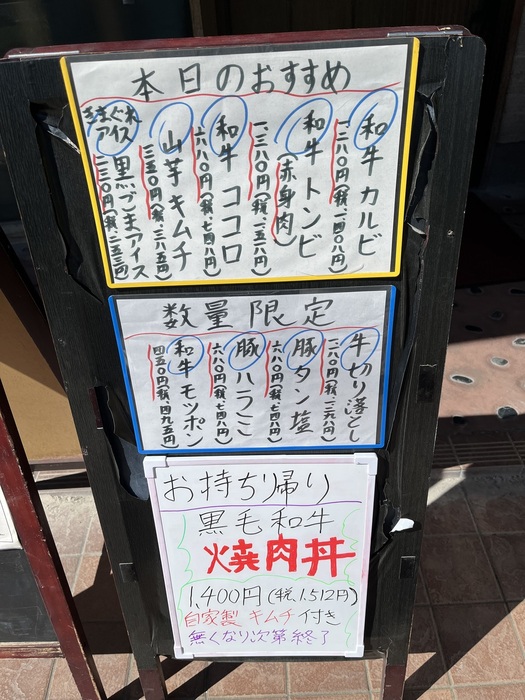 本日のおすすめ
和牛カルビ
一.二八〇円(税一.四〇八円)
和牛トンビ
(赤身肉)
一.三八〇円(税一.五一八円)
和牛ココロ
六八〇円(税.七四八円)
山芋キムチ
三五〇円(税.三八五円)
きまぐれ
アイス
黒ごまアイス
二三〇円(税.二五三円)
数量限定
牛切り落とし
一.一八〇円(税一.二九八円)
豚タン塩
六八〇円(税.七四八円)
豚ハラミ
六八〇円(税.七四八円)
和牛モツポン
四五〇円(税.四九五円)
お持ち帰り
黒毛和牛
焼肉丼
1,400円(税,1,512円)
自家製キムチ付き
無くなり次第終了